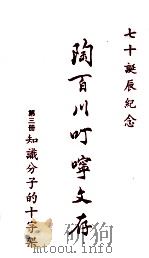 七十誕辰紀念
陶百川叮嚀文存
第三冊 知識分子的十字架